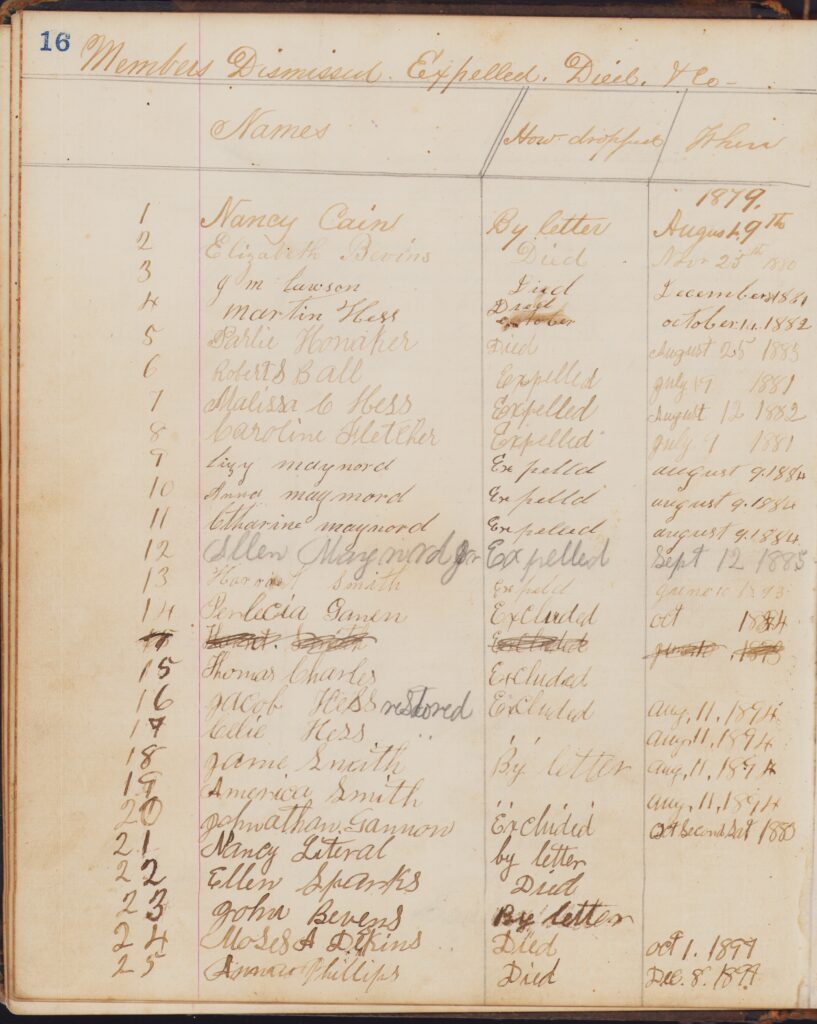 16 Members Dismissed. Expelled. Died. & Co—
Names How dropped When
1879.
1 Nancy Cain By letter August 9th
2 Elizabeth Bevins Died Nov 25th 1880
3 J m Lawson Died December 1881
4 martin Hess Died october 1882
5 Parlie Honaker Died August 25 1885
6 Roberts Ball Expelled July 9 1881
7 Malissa C Hess Expelled August 12 1882
8 Caroline Fletcher Expelled July 9 1881
9 lizy maynord Expelld august 9. 1884
10 Anna maymord Expelld august 9. 1884
11 Catharine maynord Expelled august 9. 1884
12 Ellen Maynord Jr Expelled Sept 12 1885
13 Smith Expeld June 10 1893
14 Ganen Excluded oct
Smith Excluded 1893
15 Thomas Charles Excluded
16 Jacob Hess restored Excluded aug, 11, 1894
17 Celie Hess " " aug, 11, 1894
18 Jame Smith By letter aug, 11, 1894
19 America Smith " " aug, 11, 1894
20 Johnathan Gannon Excluded oct Second Sat 1880
21 Nancy Literal by letter
22 Ellen Sparks Died
23 John Bevens By letter
24 Moses A Dekins Died oct 1. 1899
25 Phillips Died Dec. 8. 1899